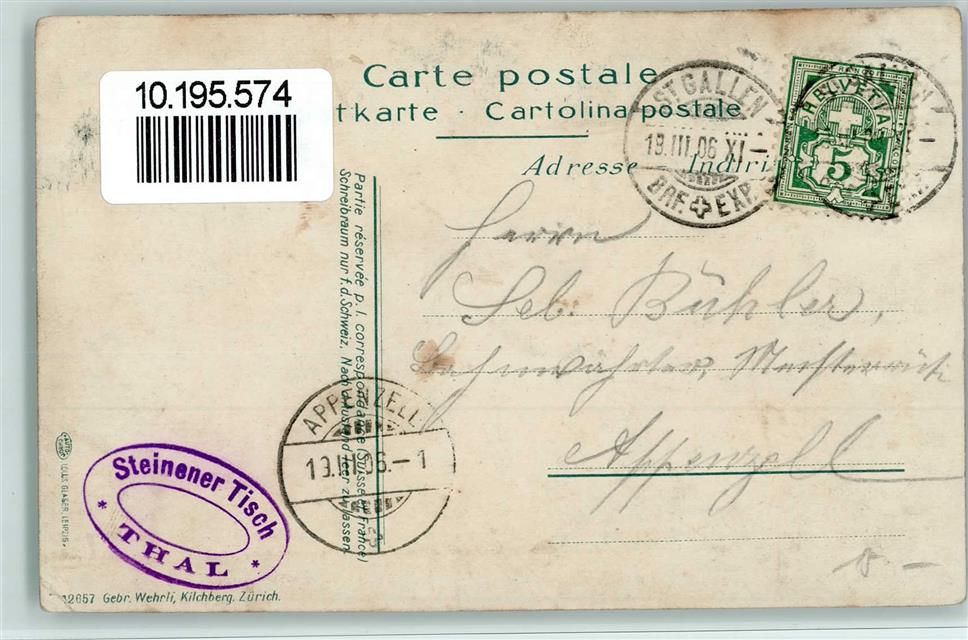 10.195.574
Carte postale
tkarte · Cartolina postale
Adresse Indiri
ST GALLEN
19.III.06 XI-
BRF EXP.
HELVETIA
FRANCO
5
Partie réservée p. l. correspondance (Suisse et France)
Schreibraum nur f. d. Schweiz. Nach Ausland leer zu lassen
Herrn
Seb. Bühler,
Bahnwärter, Meistersrüti
Appenzell
APPENZELL
19.III.06.-1
Steinener Tisch
* THAL *
LOUIS GLASER, LEIPZIG
12657 Gebr. Wehrli, Kilchberg. Zürich.
8.-